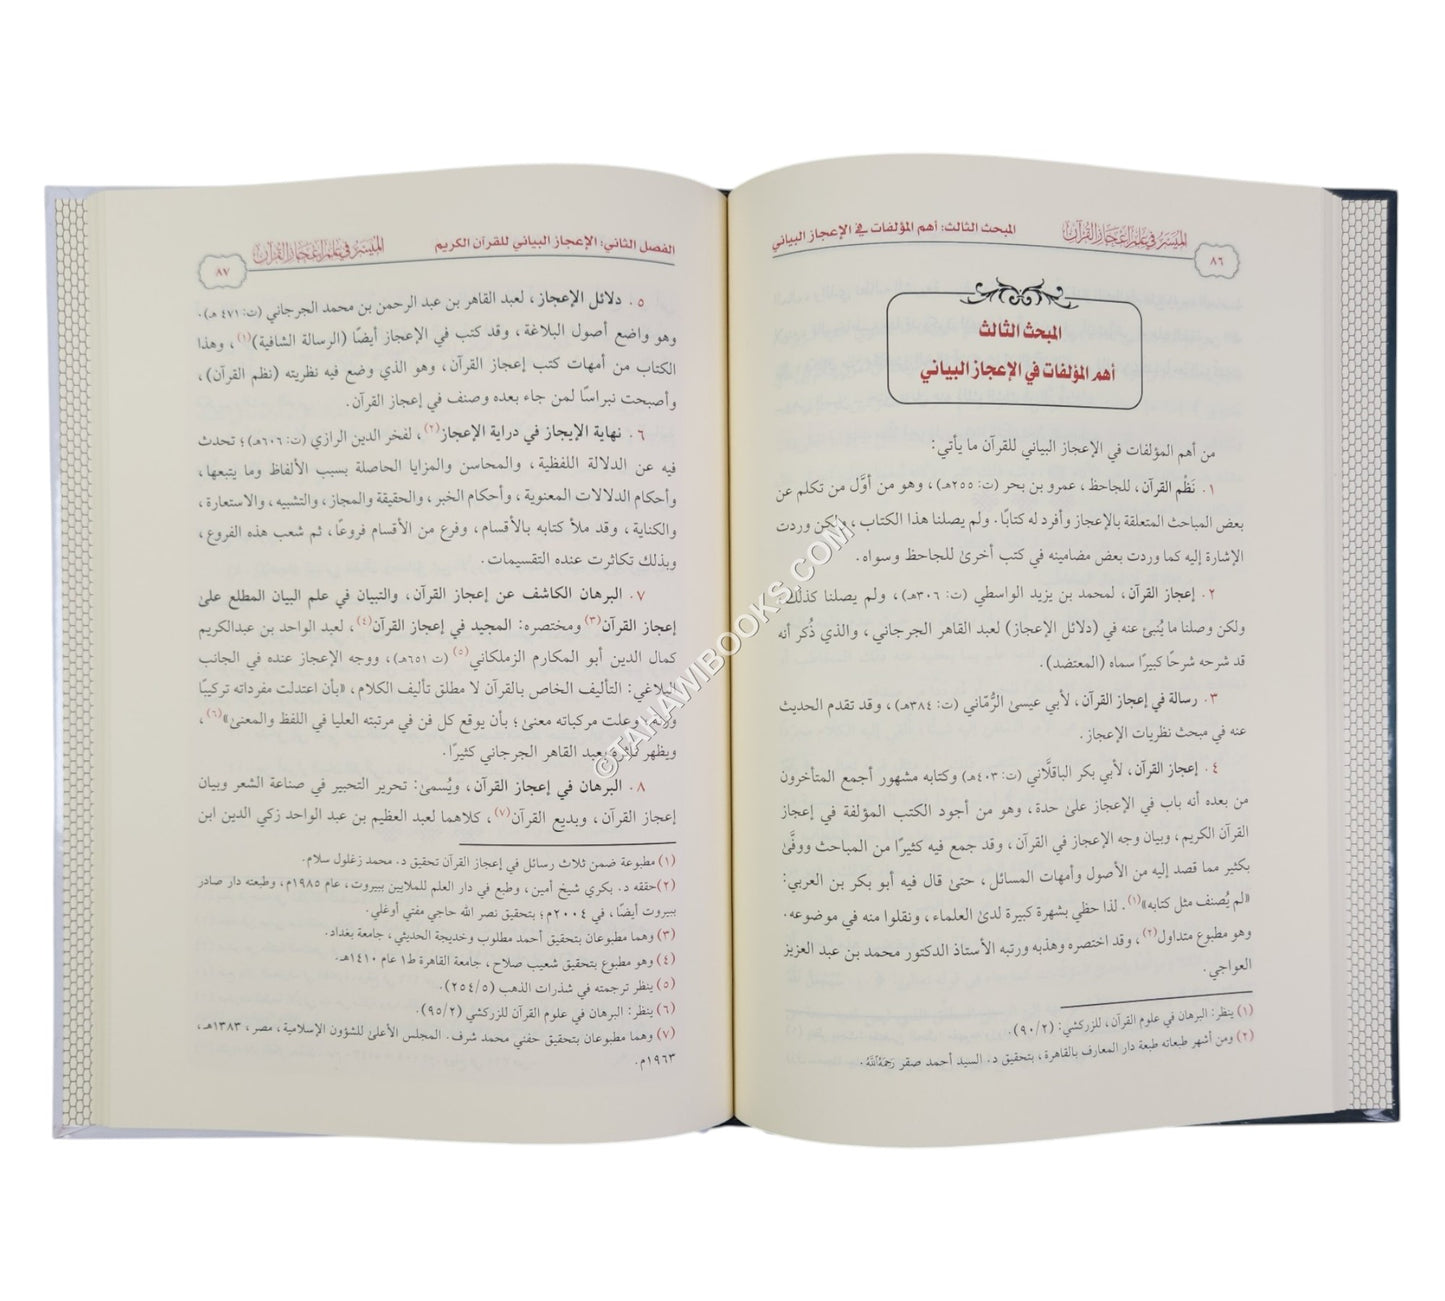 ٨٦
الميسر في علم إعجاز القرآن
المبحث الثالث: أهم المؤلفات في الإعجاز البياني
المبحث الثالث
أهم المؤلفات في الإعجاز البياني
من أهم المؤلفات في الإعجاز البياني للقرآن ما يأتي:
١. نَظْم القرآن، للجاحظ، عمرو بن بحر (ت: ٢٥٥هـ)، وهو من أوَّل من تكلم عن
بعض المباحث المتعلقة بالإعجاز وأفرد له كتابًا. ولم يصلنا هذا الكتاب، ولكن وردت
الإشارة إليه كما وردت بعض مضامينه في كتب أخرىٰ للجاحظ وسواه.
٢. إعجاز القرآن، لمحمد بن يزيد الواسطي (ت: ٣٠٦هـ)، ولم يصلنا كذلك،
ولكن وصلنا ما يُنبئ عنه في (دلائل الإعجاز) لعبد القاهر الجرجاني، والذي ذُكر أنه
قد شرحه شرحًا كبيرًا سماه (المعتضد).
٣. رسالة في إعجاز القرآن، لأبي عيسىٰ الرُّمّاني (ت: ٣٨٤هـ)، وقد تقدم الحديث
عنه في مبحث نظريات الإعجاز.
٤. إعجاز القرآن، لأبي بكر الباقلَّاني (ت: ٤٠٣هـ) وكتابه مشهور أجمع المتأخرون
من بعده أنه باب في الإعجاز علىٰ حدة، وهو من أجود الكتب المؤلفة في إعجاز
القرآن الكريم، وبيان وجه الإعجاز في القرآن، وقد جمع فيه كثيرًا من المباحث ووفَّىٰ
بكثير مما قصد إليه من الأصول وأمهات المسائل، حتىٰ قال فيه أبو بكر بن العربي:
«لم يُصنف مثل كتابه»(١). لذا حظي بشهرة كبيرة لدىٰ العلماء، ونقلوا منه في موضوعه.
وهو مطبوع متداول(٢)، وقد اختصره وهذبه ورتبه الأستاذ الدكتور محمد بن عبد العزيز
العواجي.
(١) ينظر: البرهان في علوم القرآن، للزركشي: (٩٠/٢).
(٢) ومن أشهر طبعاته طبعة دار المعارف بالقاهرة، بتحقيق د. السيد أحمد صقر رَحِمَهُ اللَّهُ.
الفصل الثاني: الإعجاز البياني للقرآن الكريم
الميسر في علم إعجاز القرآن
٨٧
٥. دلائل الإعجاز، لعبد القاهر بن عبد الرحمن بن محمد الجرجاني (ت: ٤٧١هـ).
وهو واضع أصول البلاغة، وقد كتب في الإعجاز أيضًا (الرسالة الشافية)(١)، وهذا
الكتاب من أمهات كتب إعجاز القرآن، وهو الذي وضع فيه نظريته (نظم القرآن)،
وأصبحت نبراسًا لمن جاء بعده وصنف في إعجاز القرآن.
٦. نهاية الإيجاز في دراية الإعجاز(٢)، لفخر الدين الرازي (ت: ٦٠٦هـ)؛ تحدث
فيه عن الدلالة اللفظية، والمحاسن والمزايا الحاصلة بسبب الألفاظ وما يتبعها،
وأحكام الدلالات المعنوية، وأحكام الخبر، والحقيقة والمجاز، والتشبيه، والاستعارة،
والكناية، وقد ملأ كتابه بالأقسام، وفرع من الأقسام فروعًا، ثم شعب هذه الفروع،
وبذلك تكاثرت عنده التقسيمات.
٧. البرهان الكاشف عن إعجاز القرآن، والتبيان في علم البيان المطلع علىٰ
إعجاز القرآن(٣) ومختصره: المجيد في إعجاز القرآن(٤)، لعبد الواحد بن عبدالكريم
كمال الدين أبو المكارم الزملكاني(٥) (ت ٦٥١هـ)، ووجه الإعجاز عنده في الجانب
البلاغي: التأليف الخاص بالقرآن لا مطلق تأليف الكلام، «بأن اعتدلت مفرداته تركيبًا
وعلت مركباته معنىٰ؛ بأن يوقع كل فن في مرتبته العليا في اللفظ والمعنىٰ»(٦)،
ويظهر بعبد القاهر الجرجاني كثيرًا.
٨. البرهان في إعجاز القرآن، ويُسمىٰ: تحرير التحبير في صناعة الشعر وبيان
إعجاز القرآن، وبديع القرآن(٧)، كلاهما لعبد العظيم بن عبد الواحد زكي الدين ابن
(١) مطبوعة ضمن ثلاث رسائل في إعجاز القرآن تحقيق د. محمد زغلول سلام.
(٢) حققه د. بكري شيخ أمين، وطبع في دار العلم للملايين ببيروت، عام ١٩٨٥م، وطبعته دار صادر
ببيروت أيضًا، في ٢٠٠٤م؛ بتحقيق نصر الله حاجي مفتي أوغلي.
(٣) وهما مطبوعان بتحقيق أحمد مطلوب وخديجة الحديثي، جامعة بغداد.
(٤) وهو مطبوع بتحقيق شعيب صلاح، جامعة القاهرة ط١ عام ١٤١٠هـ.
(٥) ينظر ترجمته في شذرات الذهب (٢٥٤/٥).
(٦) ينظر: البرهان في علوم القرآن للزركشي (٩٥/٢).
(٧) وهما مطبوعان بتحقيق حفني محمد شرف. المجلس الأعلىٰ للشؤون الإسلامية، مصر، ١٣٨٣هـ،
١٩٦٣م.
©TAHAWIBOOKS.COM